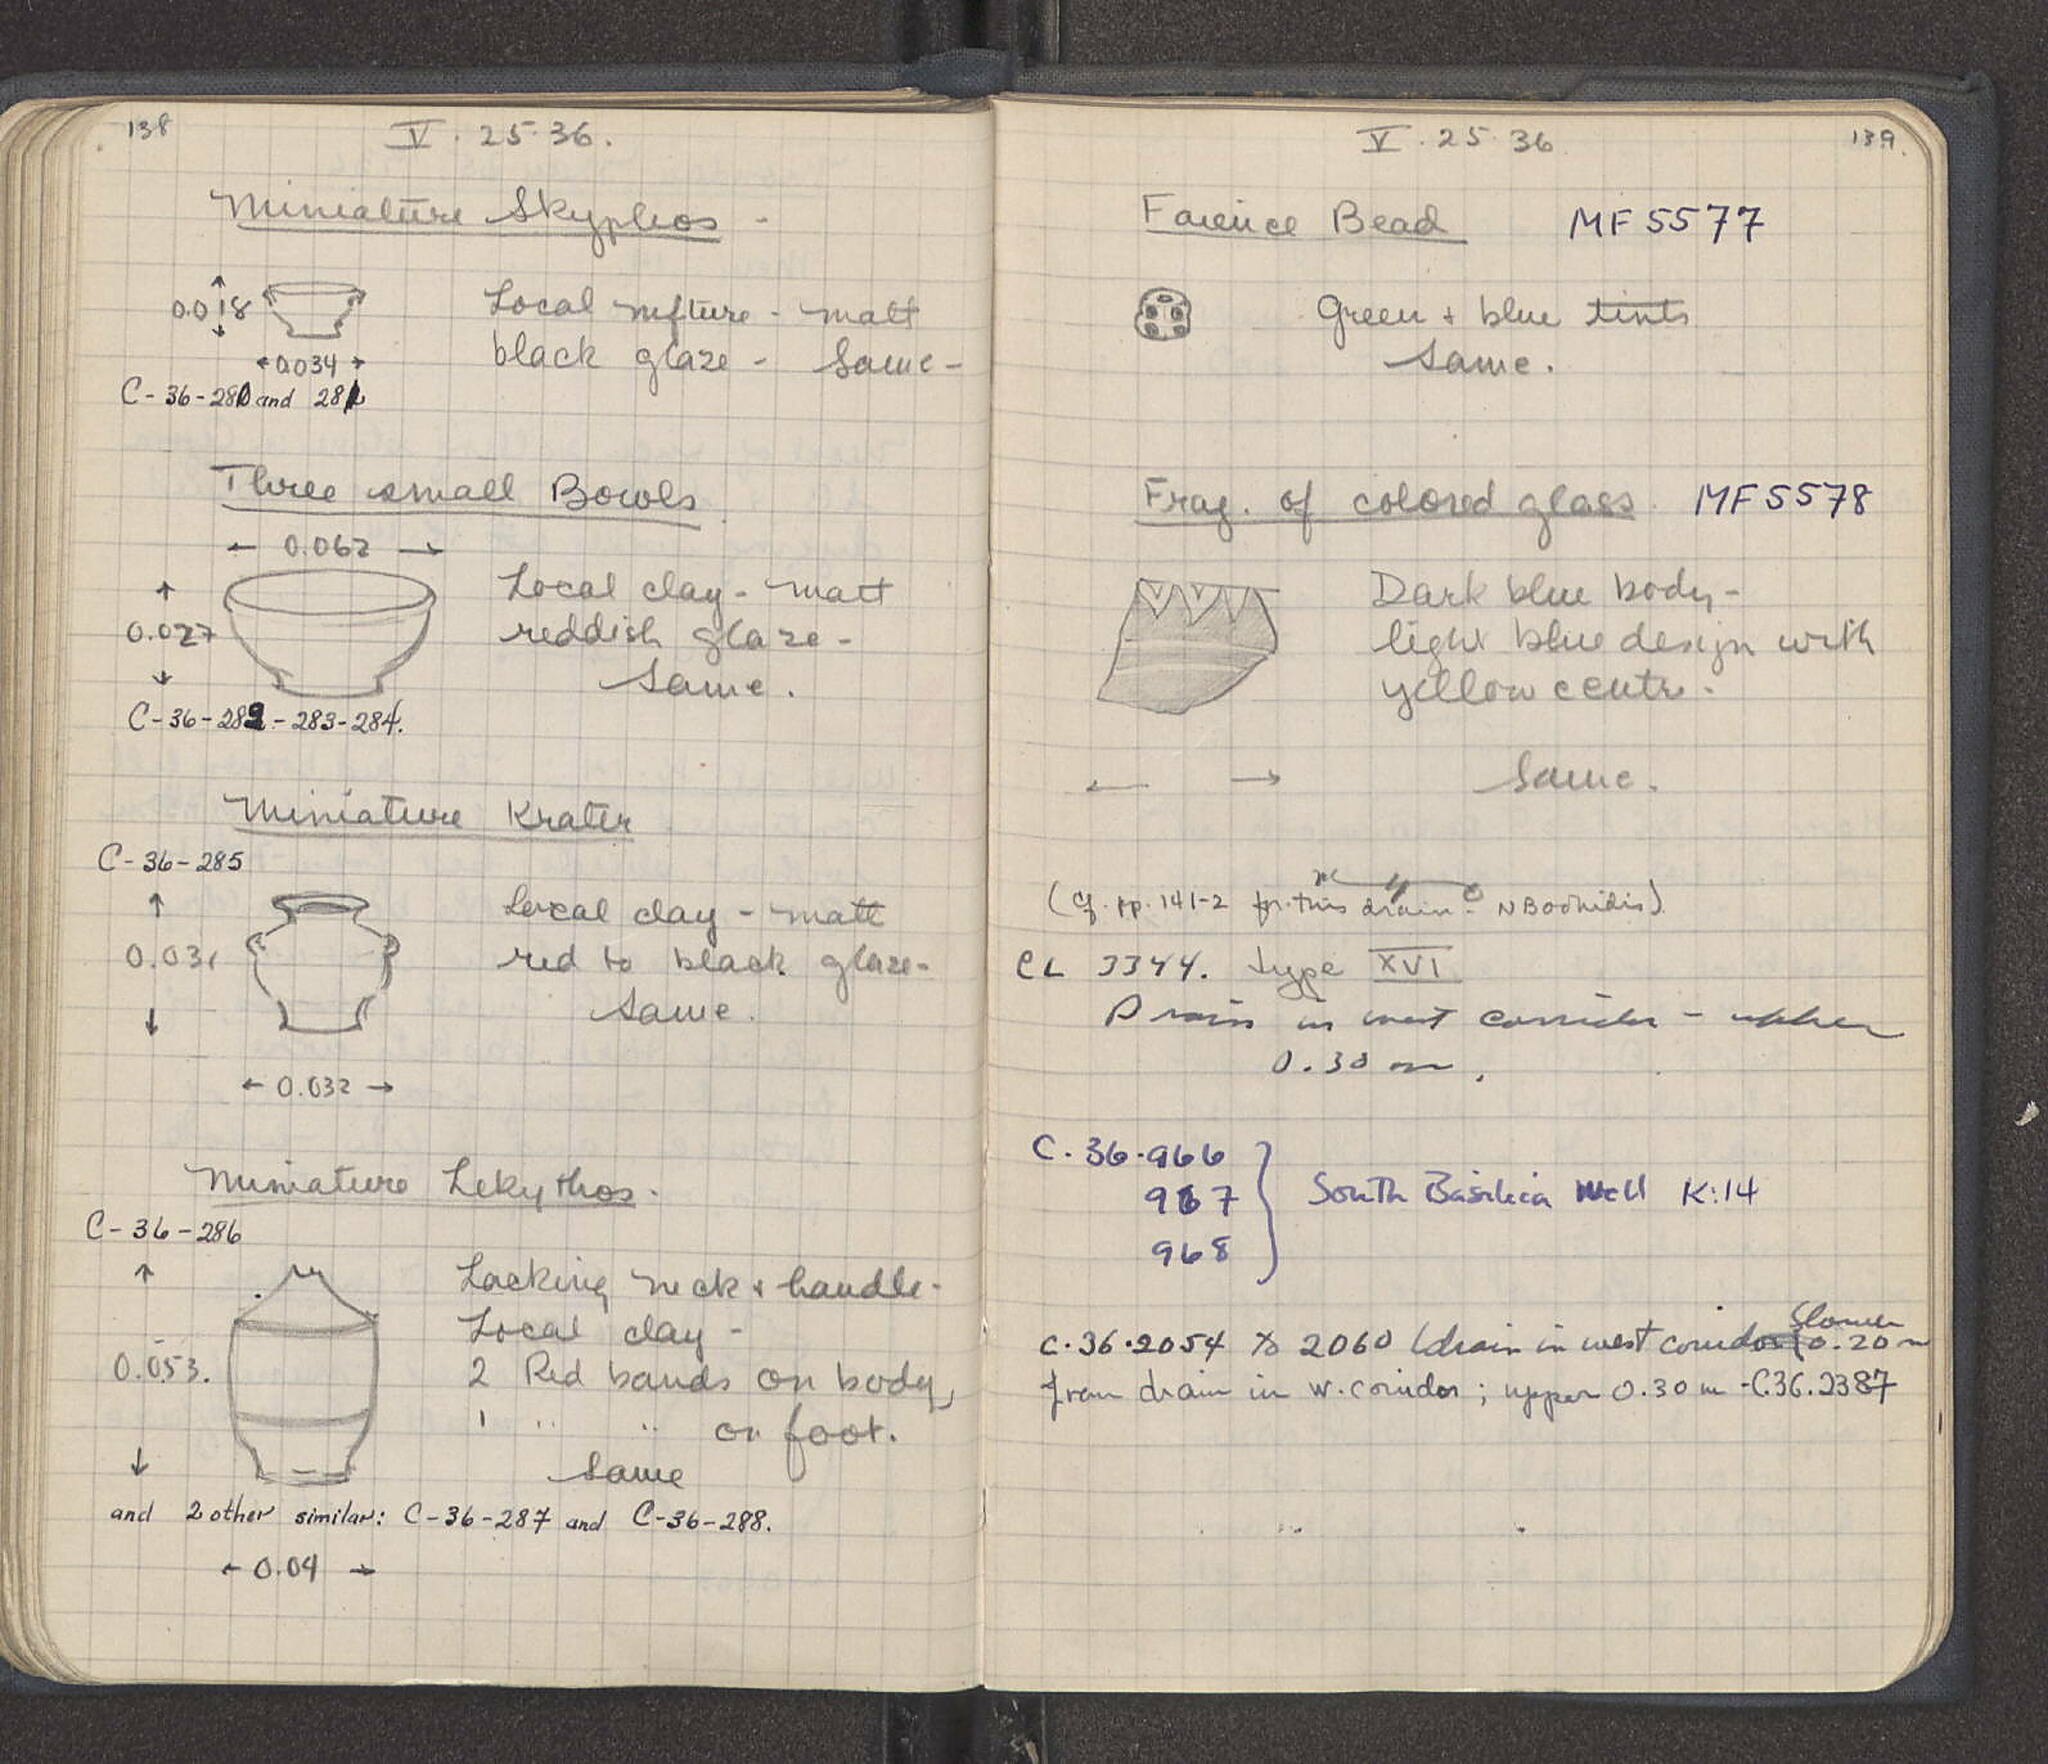 138
V. 25. 36.
Miniature Skyphos -
0.018
Local mfture - matt
black glaze - Same -
0.034
C-36-280 and 281
Three small Bowls
0.062
Local clay - matt
0.027
reddish glaze -
Same.
C-36-282-283-284.
Miniature Krater
C-36-285
Local clay - matt
0.031
red to black glaze -
Same.
0.032
Miniature Lekythos.
C-36-286
Lacking neck & handle -
Local clay -
0.053.
2 Red bands on body,
1 " " on foot.
Same
and 2 other similar: C-36-287 and C-36-288.
0.04
V. 25. 36
139.
Faience Bead MF 5577
Green + blue tints
Same.
Frag. of colored glass. MF 5578
Dark blue body -
light blue design with
yellow centr.
Same.
(cf. pp. 141-2 for this drain - N Bookidis)
CL 3344. type XVI
Drain in west corridor - upper
0.30 m.
C. 36. 966
967
968
South Basilica Well K:14
C. 36. 2054 to 2060 (drain in west corridor lower 0.20 m
from drain in W. corridor; upper 0.30 m - C.36.2387